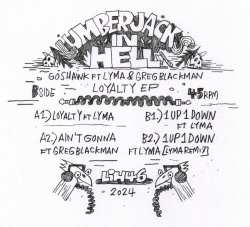 LUMBERJACKS
IN
HELL
GOSHAWK FT LYMA & GREG BLACKMAN
BSIDE LOYALTY EP 45RPM
A1) LOYALTY FT LYMA
A2) AIN'T GONNA
FT GREG BLACKMAN
B1) 1 UP 1 DOWN
FT LYMA
B2) 1 UP 1 DOWN
FT LYMA [LYMA REMIX]
LIH46
2024